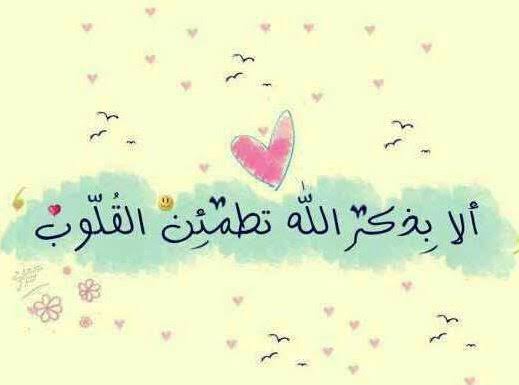 ألا بِذكر اللّٰه تطمئِن القُلّوب